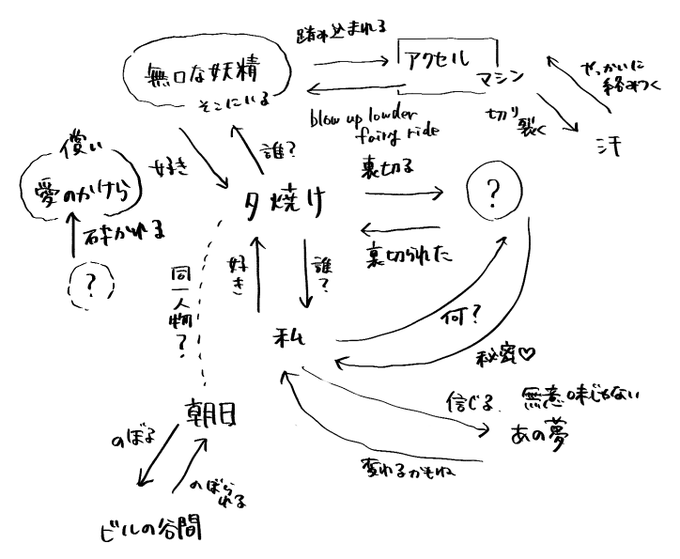 踏み込まれる
アクセル
マシン
無口な妖精
そこにいる
やっかいに
絡みつく
blow up lowder
fairy ride
切り
裂く
汗
儚い
愛のかけら
好き
誰?
夕焼け
裏切る
?
裏切られた
砕かれる
?
同一人物?
好き
誰?
私
何?
秘密♡
朝日
信じる
無意味じゃない
あの夢
変われるかもね
のぼる
のぼら
れる
ビルの谷間